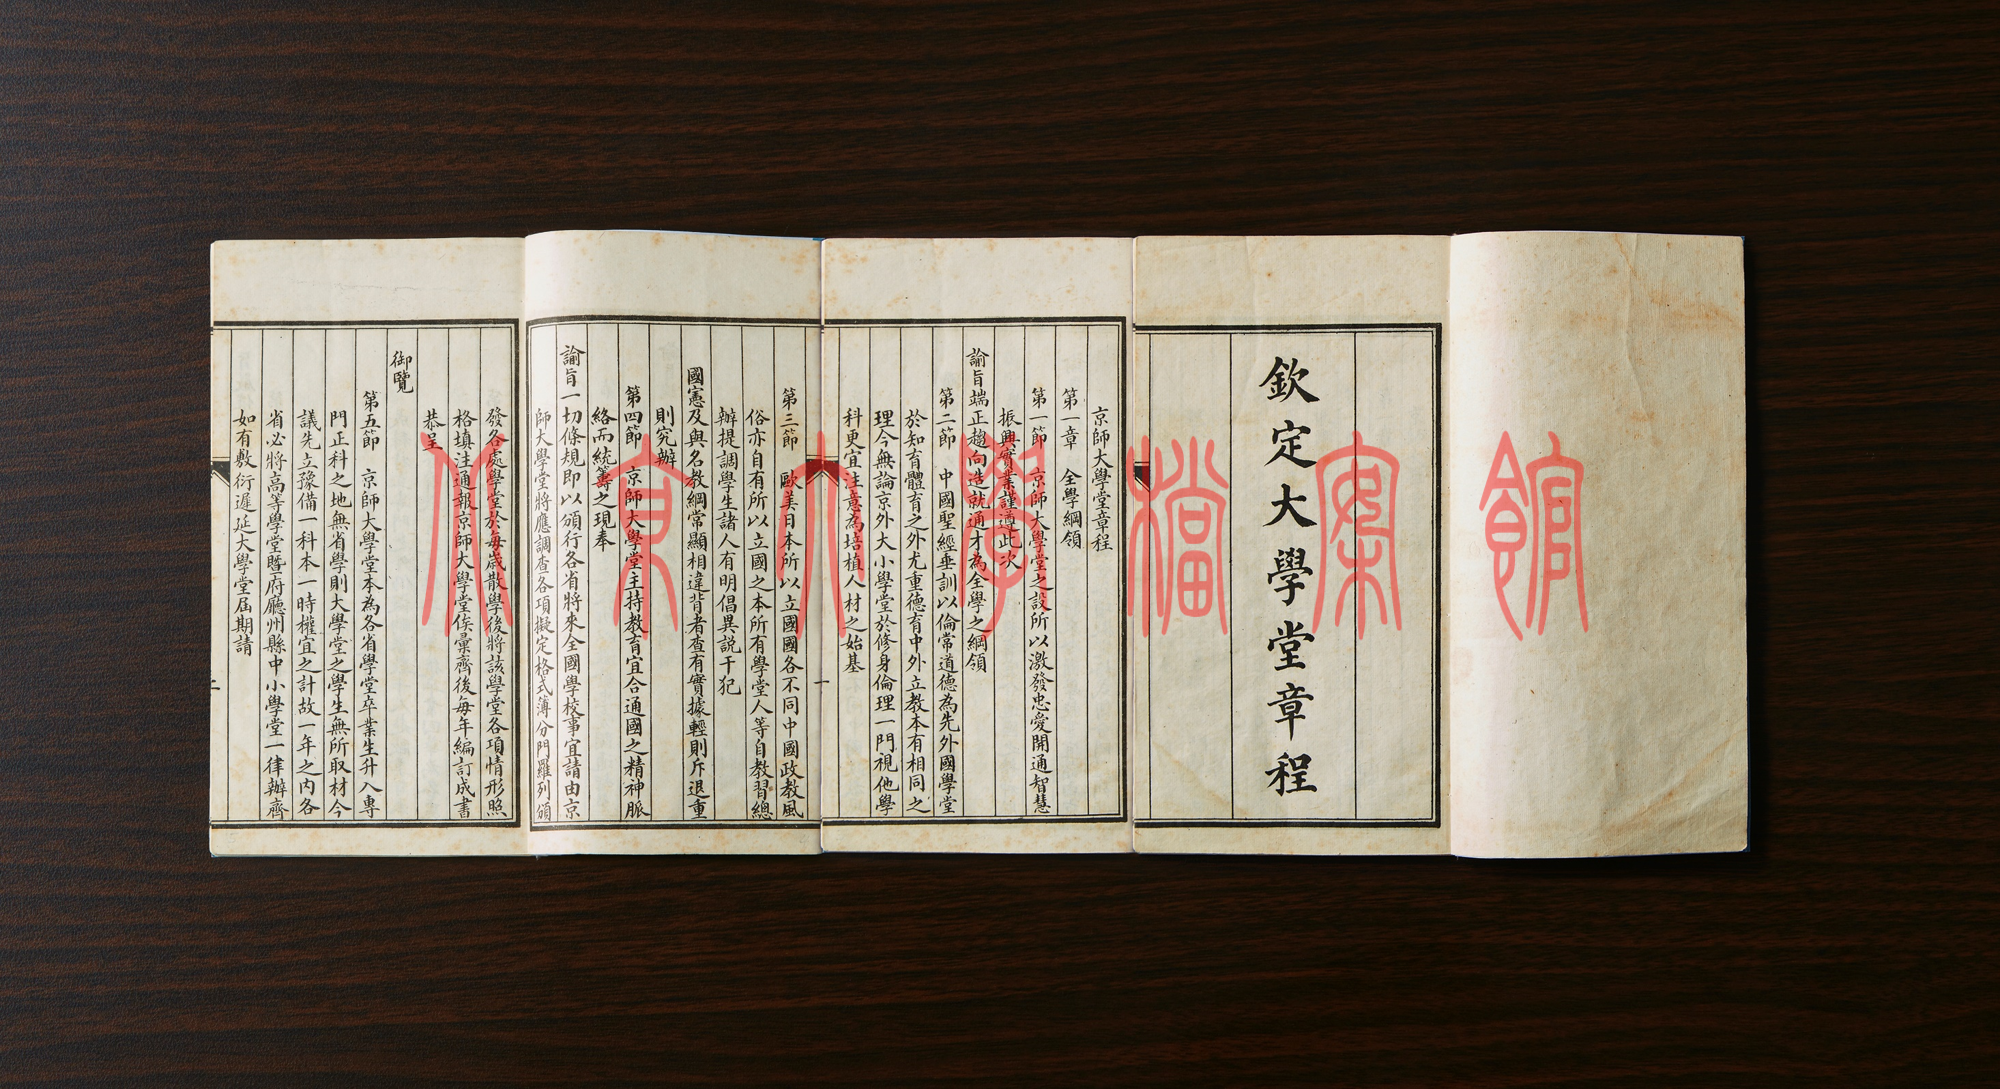 欽定大學堂章程
京師大學堂章程
第一章　全學綱領
第一節　京師大學堂之設所以激發忠愛開通智慧
振興實業謹遵此次
諭旨端正趨向造就通才為全學之綱領
第二節　中國聖經垂訓以倫常道德為先外國學堂
於知育體育之外尤重德育中外立教本有相同之
理今無論京外大小學堂於修身倫理一門視他學
科更宜注意為培植人材之始基
一
第三節　歐美日本所以立國國各不同中國政教風
俗亦自有所以立國之本所有學堂人等自教習總
辦提調學生諸人有明倡異説干犯
國憲及與名教綱常顯相違背者查有實據輕則斥退重
則究辦
第四節　京師大學堂主持教育宜合通國之精神脈
絡而統籌之現奉
諭旨一切條規即以頒行各省將來全國學校事宜請由京
師大學堂將應調查各項擬定格式簿分門羅列頒
發各處學堂於每歲散學後將該學堂各項情形照
格填注通報京師大學堂俟彙齊後每年編訂成書
恭呈
御覽
第五節　京師大學堂本為各省學堂卒業生升入專
門正科之地無省學則大學堂之學生無所取材今
議先立豫備一科本一時權宜之計故一年之内各
省必將高等學堂暨府廳州縣中小學堂一律辦齊
如有敷衍遲延大學堂屆期請
二
北京大學檔案館